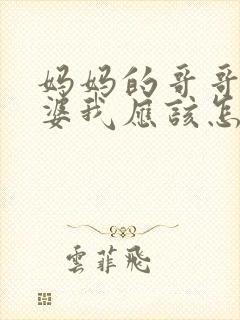 妈妈的哥哥
婆我应该怎
雲菲飛